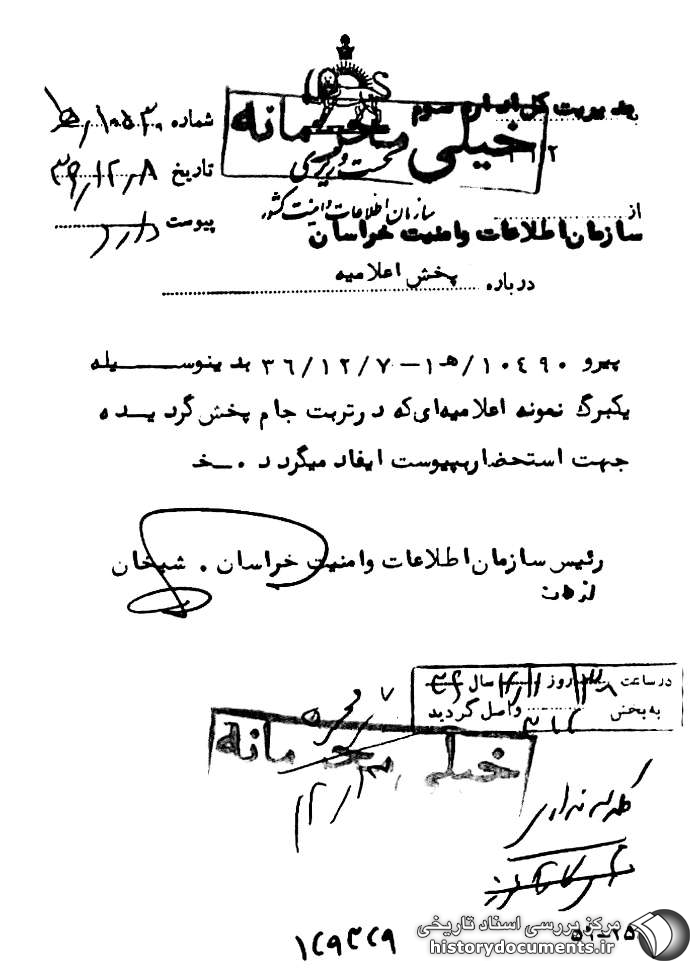 مدیریت کل اداره سوم
۳۱۲
خیلی محرمانه
نخست وزیری
سازمان اطلاعات و امنیت کشور
شماره
تاریخ ۳۶/۱۲/۸
پیوست دارد
از
سازمان اطلاعات وامنیت خراسان
درباره پخش اعلامیه
پیرو ۱۰٤۹۰/هـ۱–۳۶/۱۲/۷ بدینوسیله
یکبرگ نمونه اعلامیه‌ای‌که در تربت جام پخش گردیده
جهت استحضار بپیوست ایفاد میگردد ۰ـخـ
رئیس سازمان اطلاعات وامنیت خراسان ۰ شیخان
در ساعت روز سال ۳۶
به بخش ۳۱۲ واصل گردید
خیلی محرمانه
مرکز بررسی اسناد تاریخی
historydocuments.ir